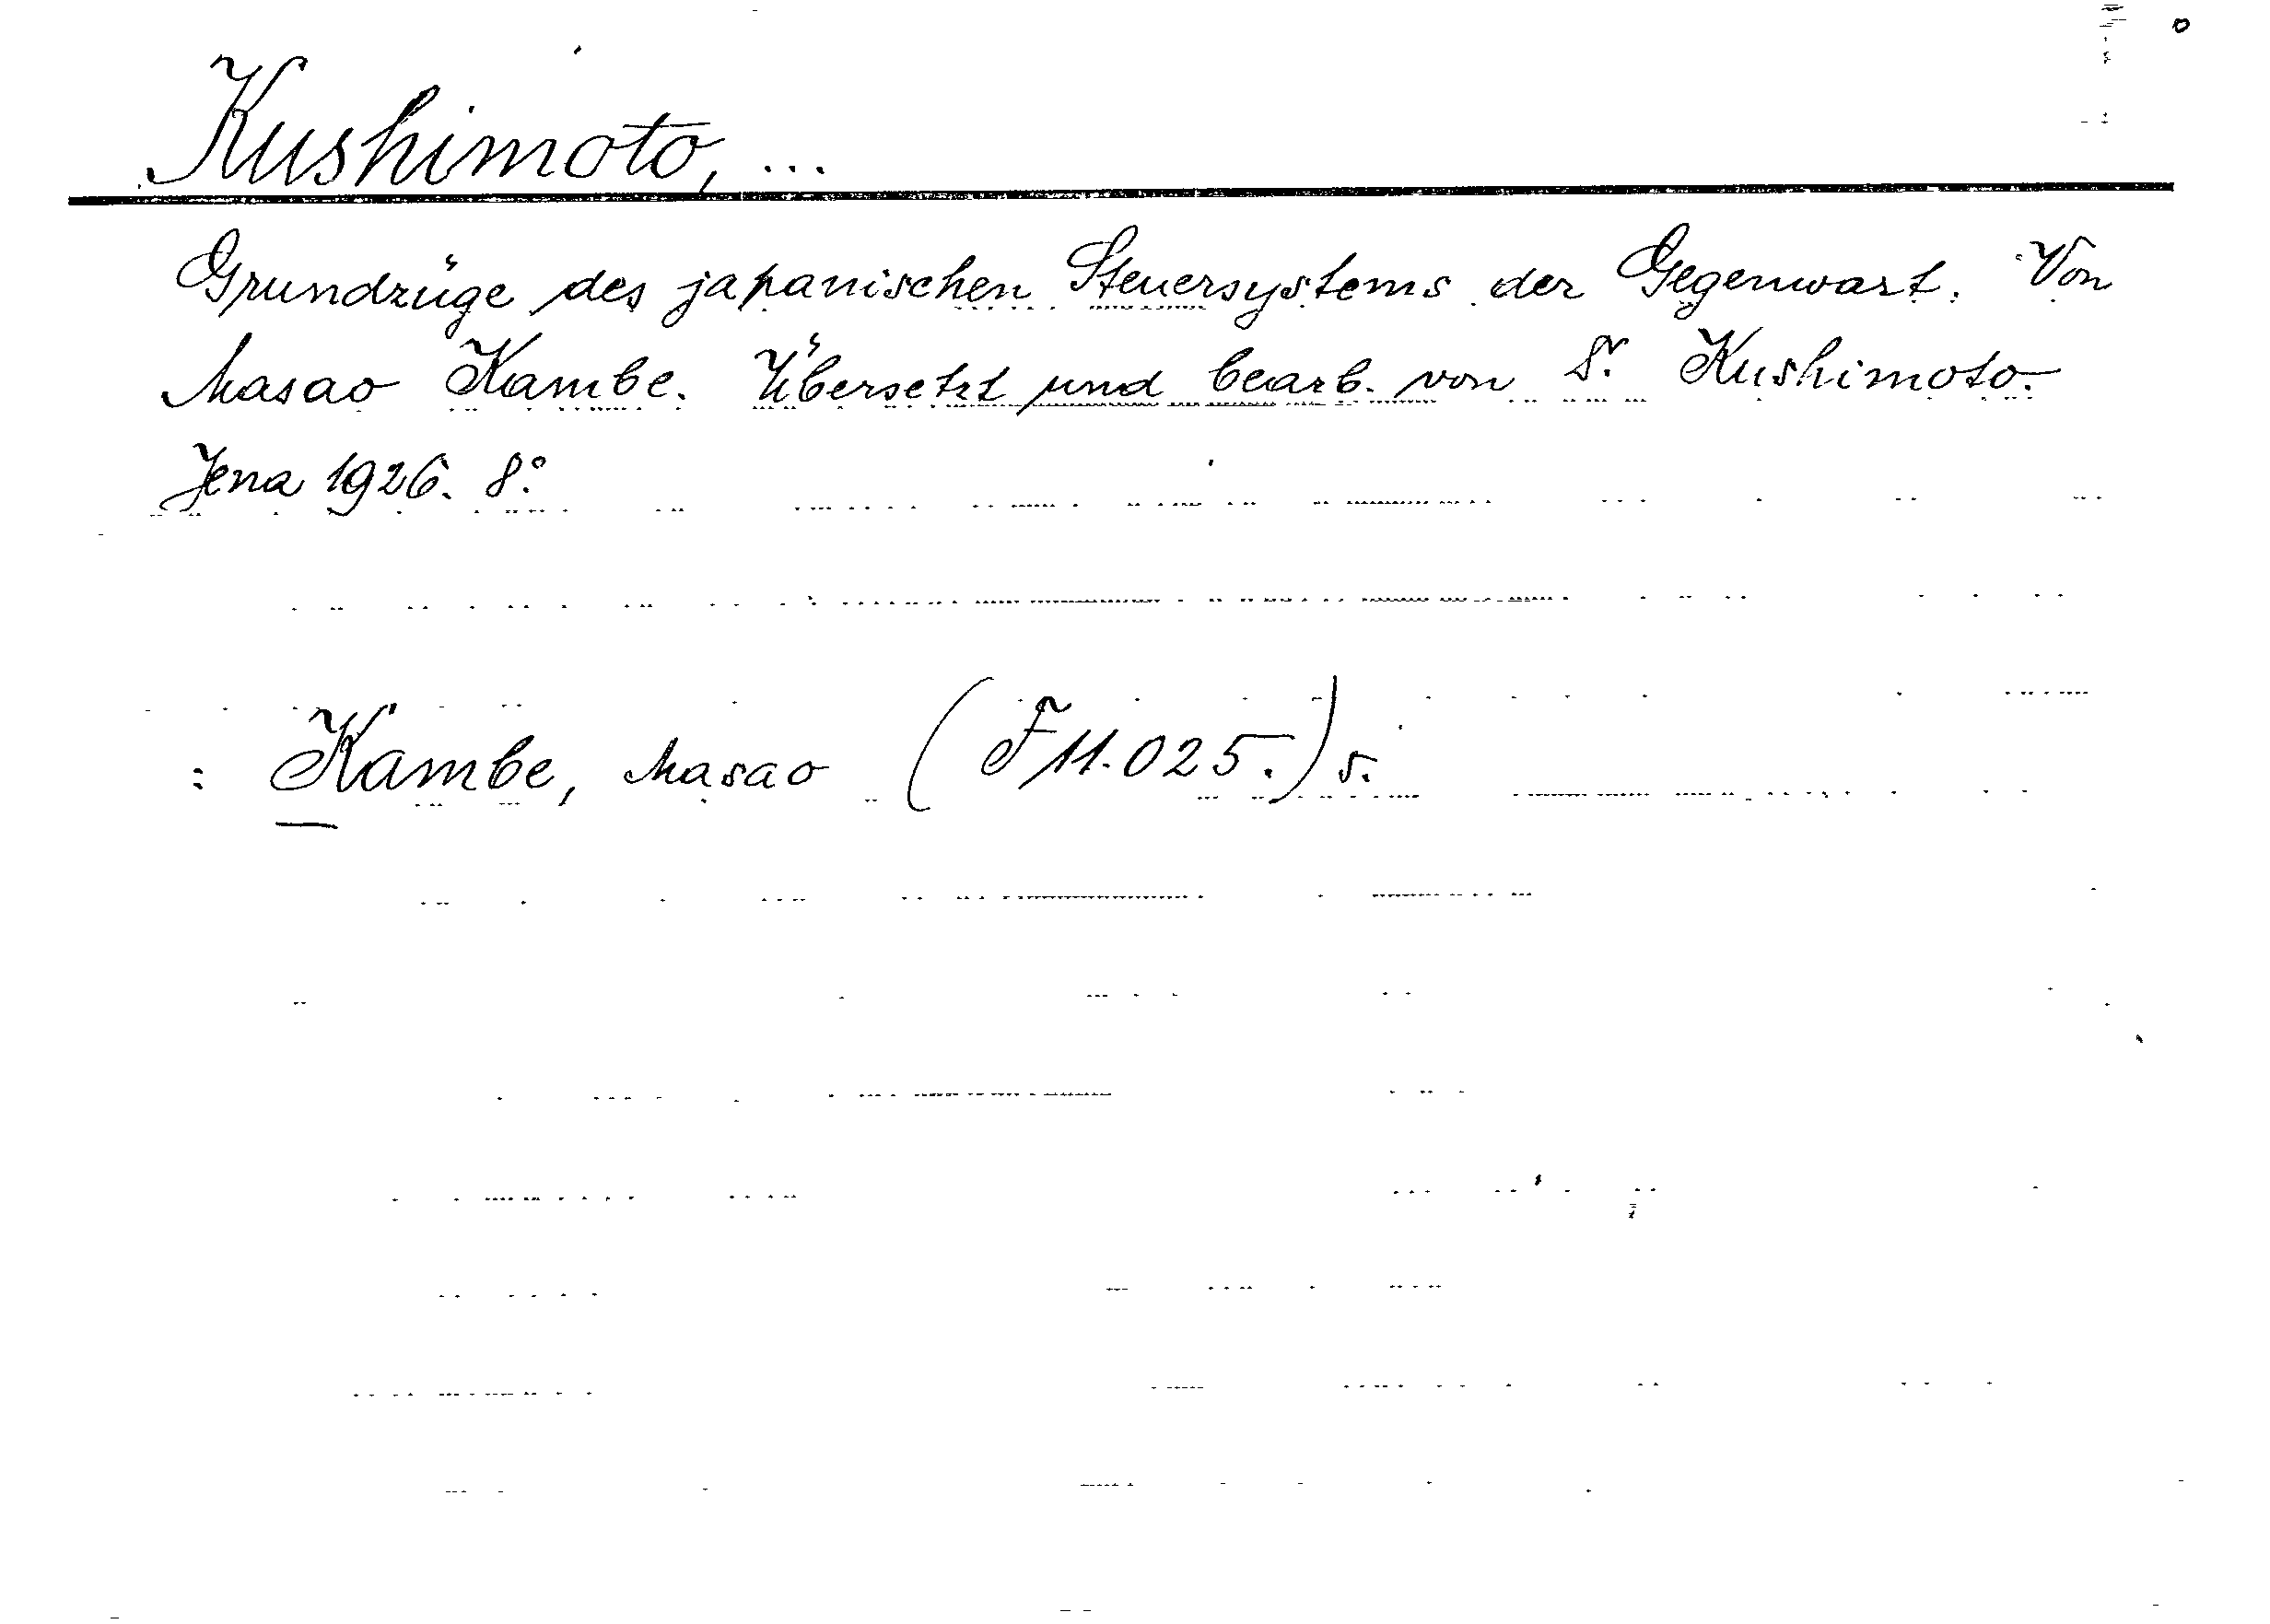 Kushimoto, ...
Grundzüge des japanischen Steuersystems der Gegenwart. Von
Masao Kambe. Übersetzt und bearb. von Kushimoto.
Jena 1926. 8°.
: Kambe, Masao (F 11.025.) s.